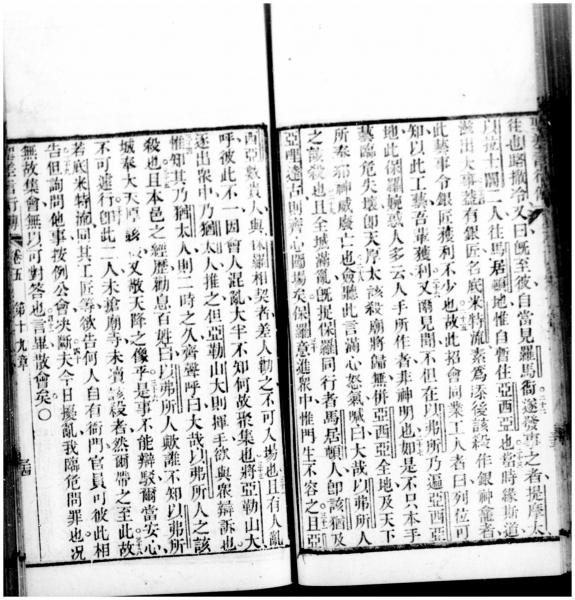 往也路撒冷又曰旣至彼自當見羅馬矣遂發事之者提摩太
以拉士闥二人往馬居頓地惟自暫住亞西亞也當時緣斯道
滋出大事蓋有銀匠名底米特流素為該殺作銀神龕者
此藝事令銀匠獲利不少也故此招會同業工人者曰列位可
知以此工藝吾輩獲利又爾見聞不但在以弗所乃遍亞西亞
地此保羅婉惑人多云人手所作者非神明也如是不只本手
藝臨危失壞卽天厚太該殺廟將歸無倂亞西亞全地及天下
所奉邪神威廢亡也會聽此言滿心怒氣喊曰大哉以弗所人
之該殺也且全城滿亂旣捉保羅同行者馬居頓人卽該猶及
亞呼達古則齊心闖場矣保羅意進眾中惟門生不容之且亞
西亞數貴人與保羅相契者差人勸之不可入場也且有人亂
呼彼此不一因會人混亂大半不知何故聚集也將亞勒山大
逐出眾中乃猶太人推之但亞勒山大則揮手欲與眾辯訴也
惟知其乃猶太人則二時之久齊聲呼曰大哉以弗所人之該
殺也且本邑之經歷勸息百姓曰以弗所人歟誰不知以弗所
城奉大天厚該 又敬天降之像乎是事不能辯駁爾當安心
不可遽行卽此二人未搶廟寺未瀆該殺者然爾帶之至此故
若底米特流同其工匠等欲告何人自有衙門官員可彼此相
告但詢問他事按例公會夬斷夫今日擾亂我臨危問罪也况
無故集會無以可對答也言畢散會矣○
卷五 第十九章